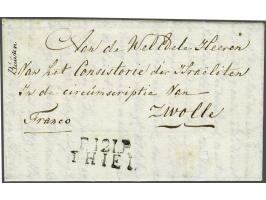 Aan de Wel Edele Heeren
Van het Consistorie der Israëliten
In de circumscriptie Van
Zwolle
Franco
P.121.P.
THIEL